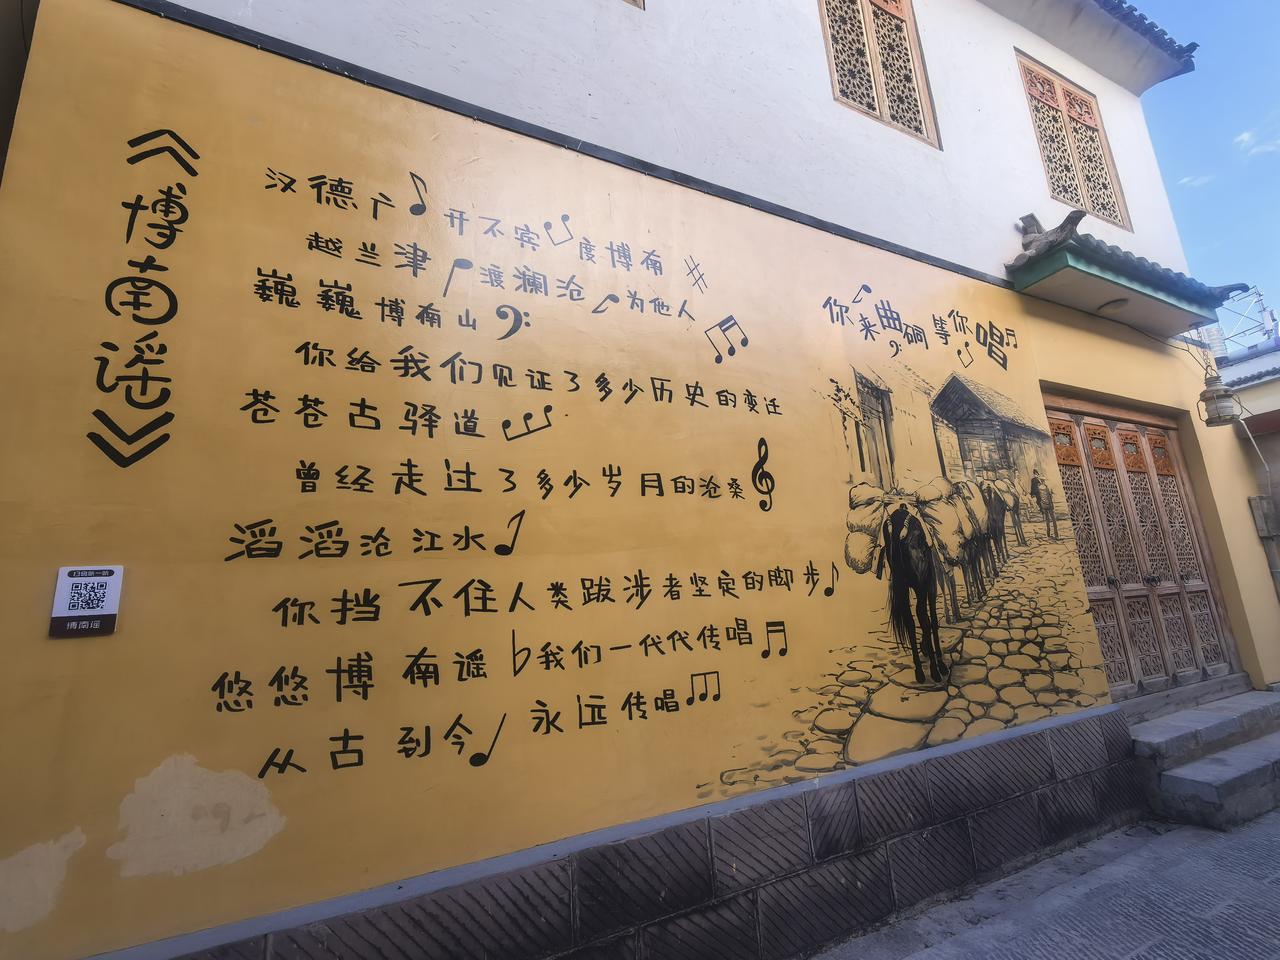 《博南谣》
汉德广 开不宾 度博南
越兰津 渡澜沧 为他人
巍巍博南山
你给我们见证了多少历史的变迁
苍苍古驿道
曾经走过了多少岁月的沧桑
滔滔沧江水
你挡不住人类跋涉者坚定的脚步
悠悠博南谣 我们一代代传唱
从古到今 永远传唱
你来曲硐等你唱
扫码听一听
博南谣